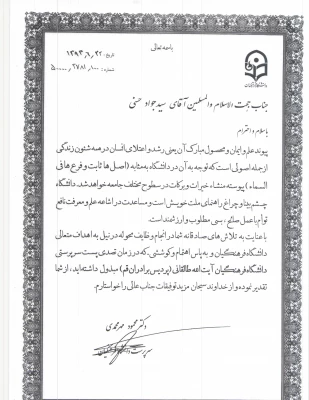 باسمه تعالی
تاریخ: ۱۳۹۳/۶/۲۲
شماره: ۵۰۰۰۰/۲۷۸۱/۱۰۰
جناب حجت الاسلام والمسلمین آقای سیدجواد حسنی
با سلام و احترام
پیوند علم و ایمان و محصول مبارک آن یعنی رشد و اعتلای انسان در همه شئون زندگی
از جمله اصولی است که توجه به آن در دانشگاه به مثابه (اصلها ثابت و فرعها فی
السماء) پیوسته منشاء خیرات و برکات در سطوح مختلف جامعه خواهد شد. دانشگاه
چشم بینا و چراغ راهنمای ملت خویش است و مساعدت در اشاعه علم و معرفت نافع
توأم با عمل صالح، بسی مطلوب و ارزشمند است.
با عنایت به تلاش های صادقانه شما در انجام وظایف محوله در نیل به اهداف متعالی
دانشگاه فرهنگیان و به پاس اهتمام و کوششی که در زمان تصدی پست سرپرستی
دانشگاه فرهنگیان آیت اله طالقانی (پردیس برادران قم) مبذول داشته اید، از شما
تقدیر نموده و از خداوند سبحان مزید توفیقات جناب عالی را خواستارم.
دکتر محمود مهرمحمدی
سرپرست دانشگاه فرهنگیان